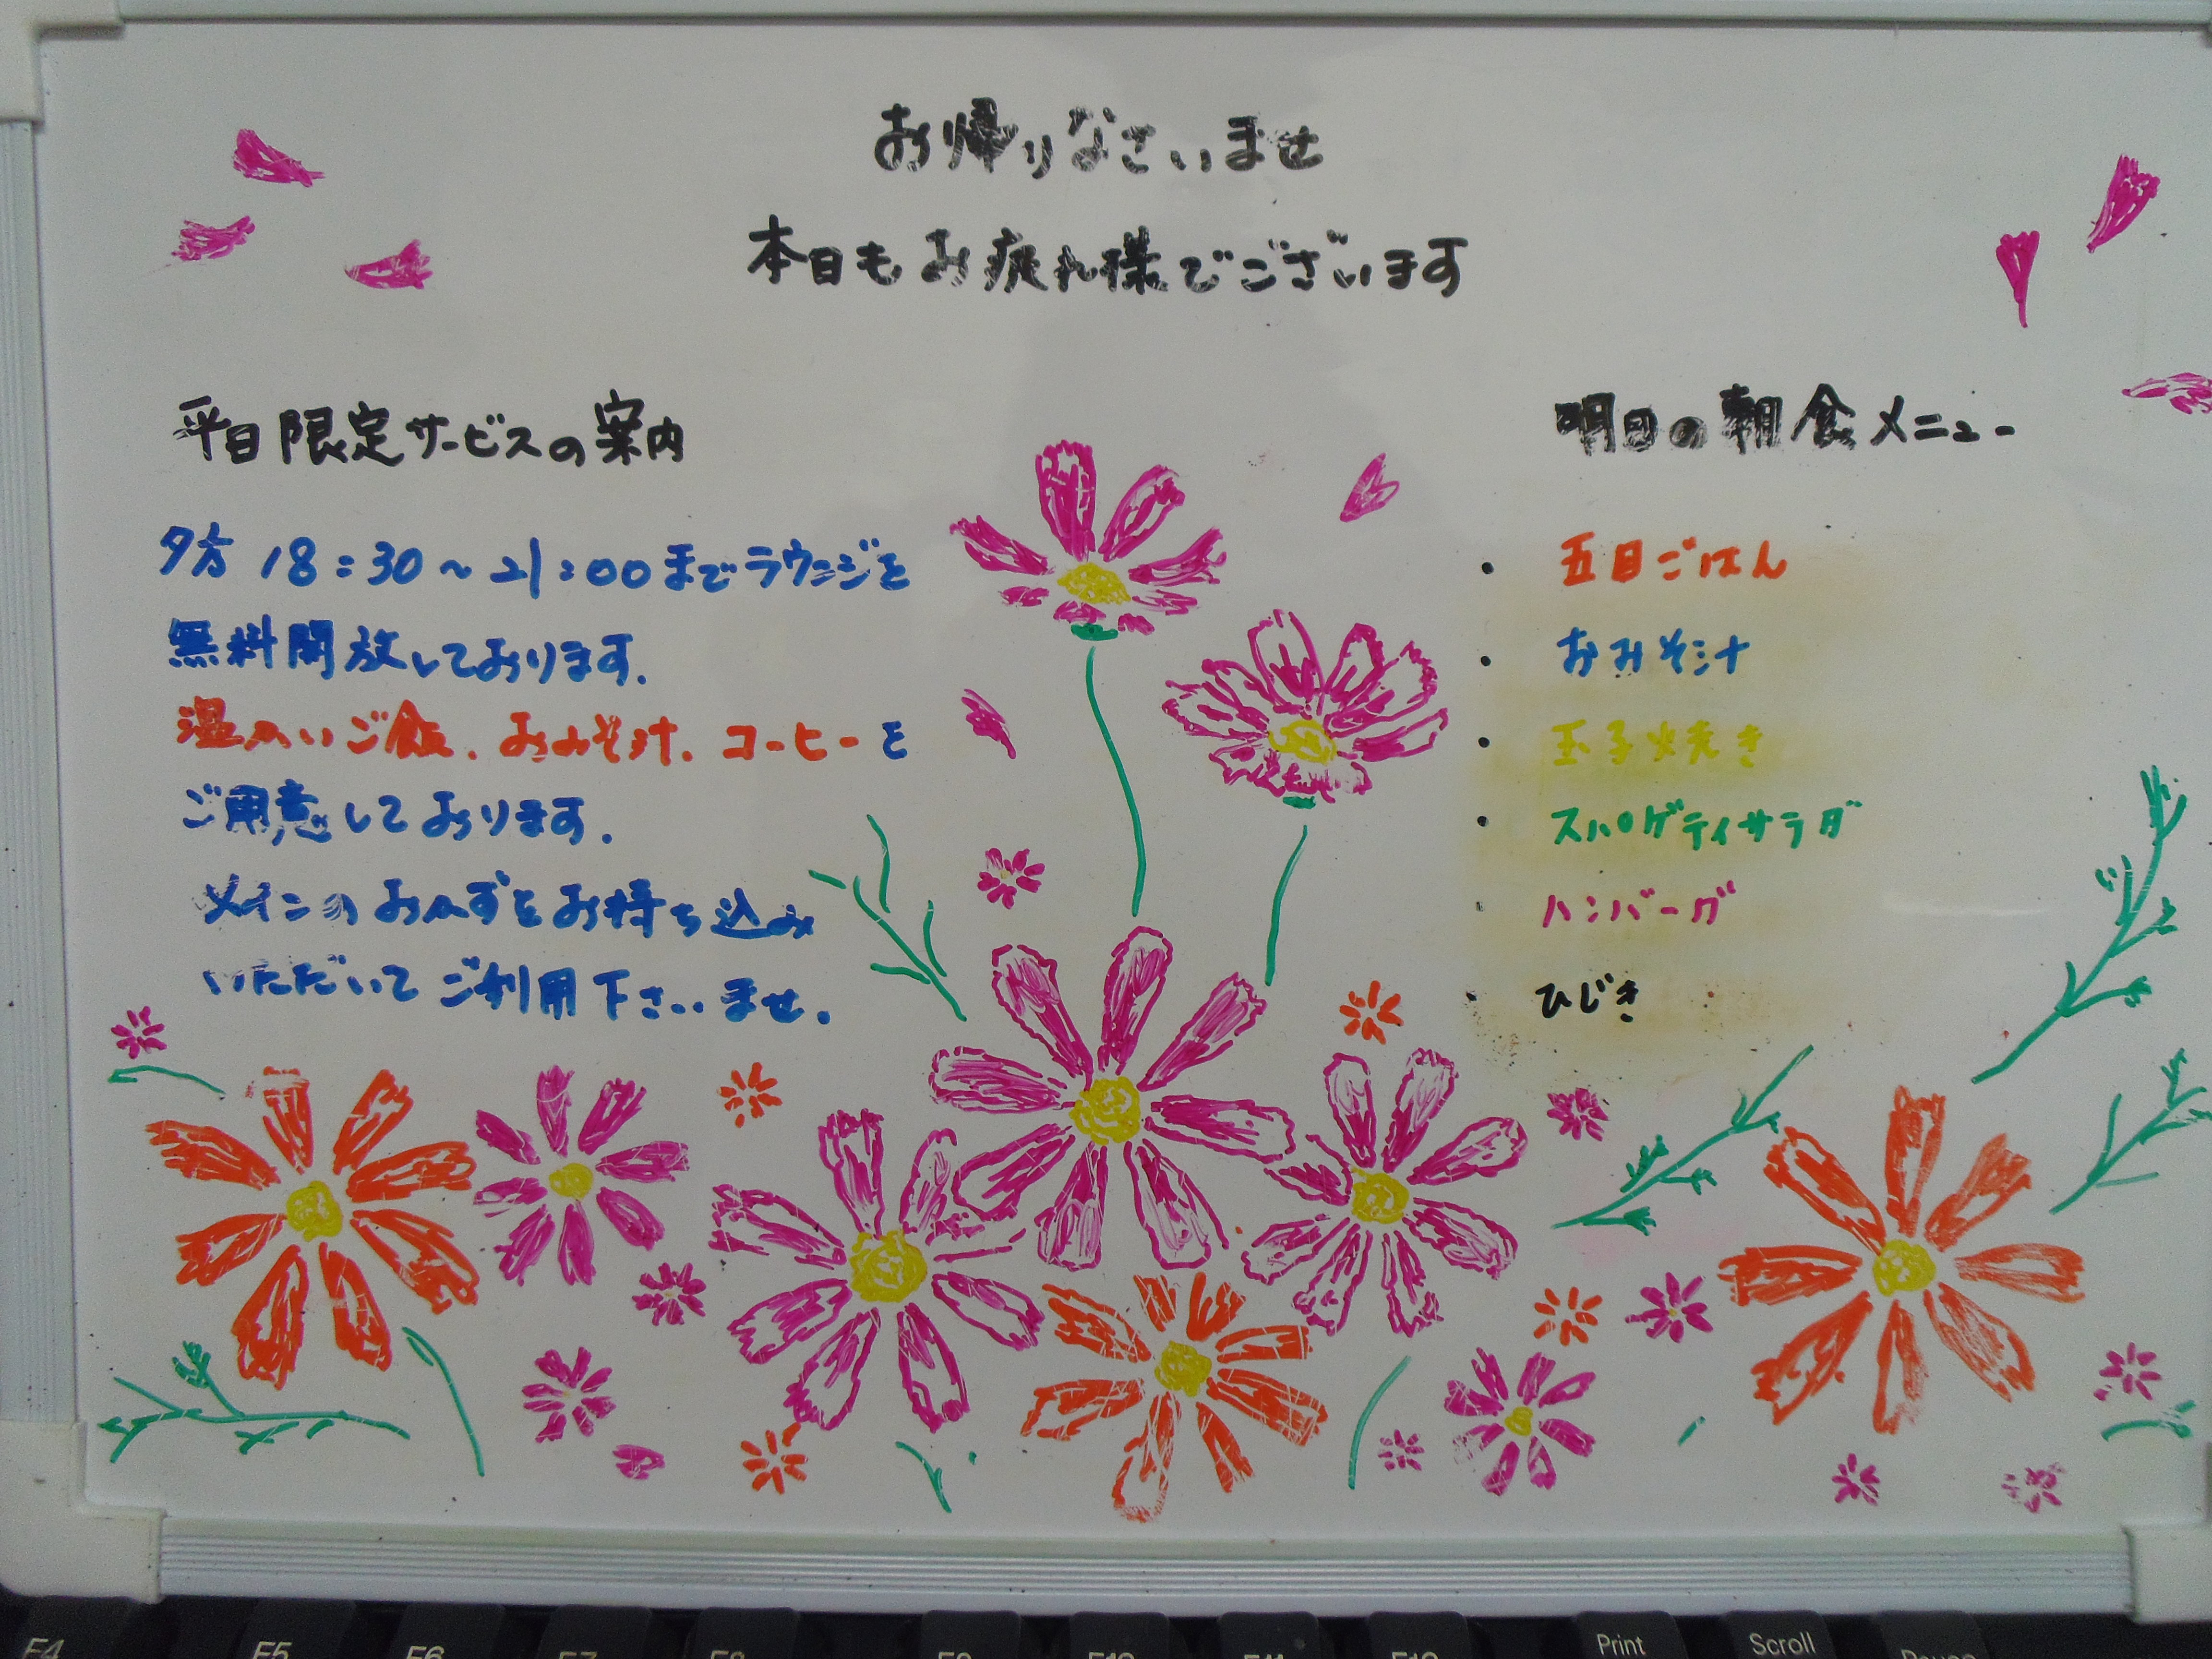 お帰りなさいませ
本日もお疲れ様でございます
平日限定サービスの案内
夕方 18:30~21:00までラウンジを
無料開放しております.
温かいご飯、おみそ汁、コーヒーを
ご用意しております.
メインのおかずをお持ち込み
いただいてご利用下さいませ.
明日の朝食メニュー
・ 五目ごはん
・ おみそ汁
・ 玉子焼き
・ スパゲティサラダ
・ ハンバーグ
・ ひじき
F4 F5 F6 F7 F8 F9 F10 F11 F12 Print Scroll Pause